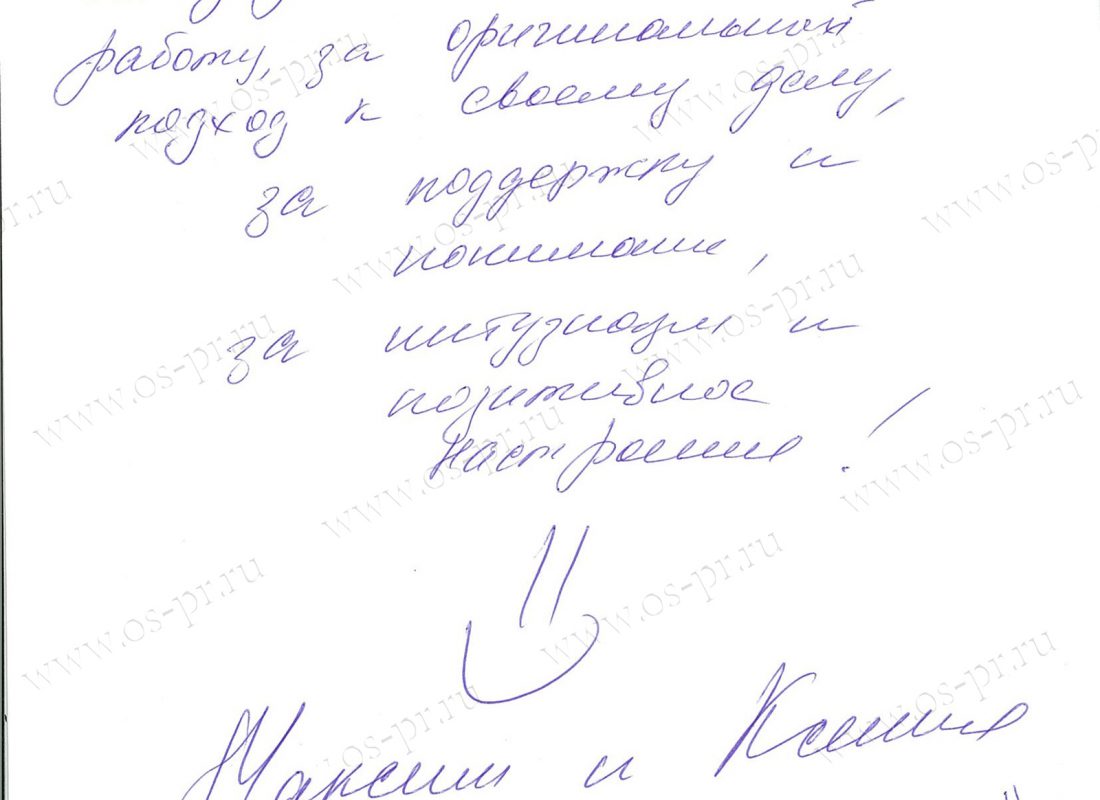 работу, за оригинальный
подход к своему делу,
за поддержку и
понимание,
за интузиазм и
позитивное
настроение!
Максим и Ксения
www.os-pr.ru